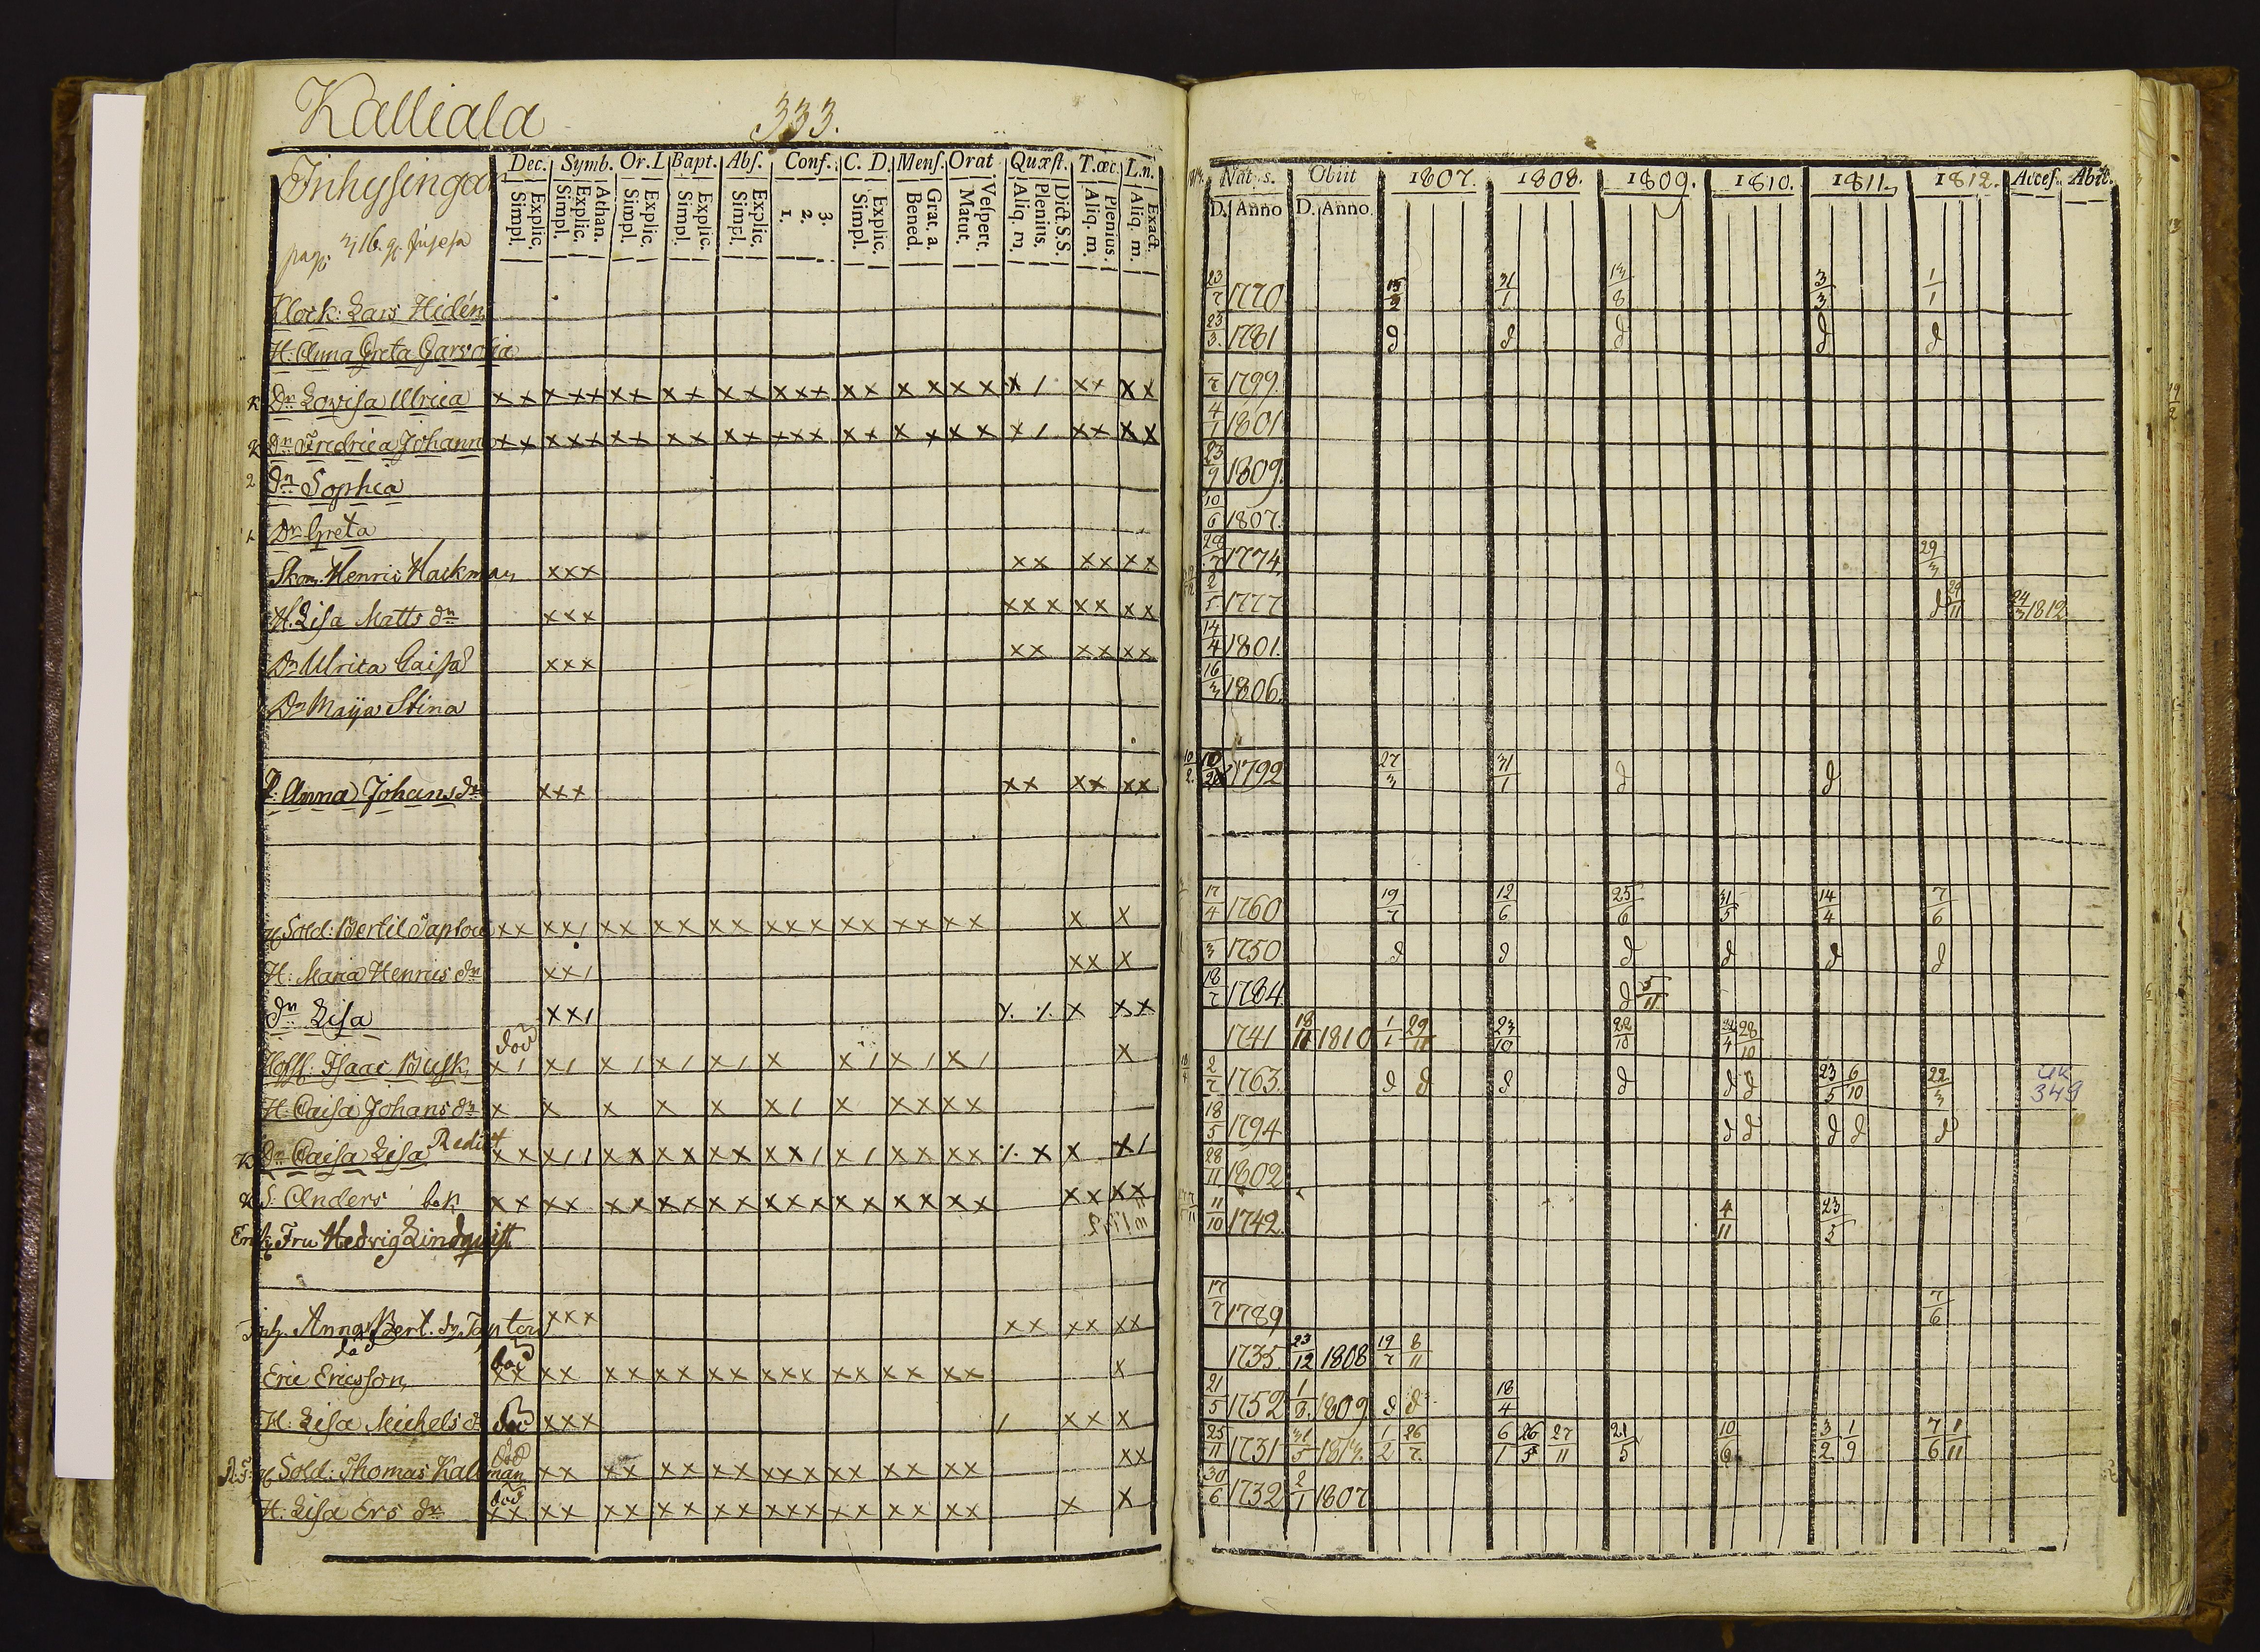 Kalliala 333.
Inhysingar
Dec. Symb. Or. D. Bapt. Abs. Conf. C. D. Mens. Orat. Quæst. T. œc. L. n.
Explic. Simpl. Athan. Explic. Simpl. Explic. Simpl. Explic. Simpl. Explic. Simpl. 3. 2. 1. Explic. Simpl. Grat. a. Bened. Vespert. Matut. Dict. S.S. Plenius. Aliq. m. Plenius. Aliq. m. Exact. Aliq. m.
Nat. s. Obiit 1807. 1808. 1809. 1810. 1811. 1812. Acces. Abit.
D. Anno D. Anno.
pag: 316.
Klock: Lars Hidén 23/7 1770 31/1 13/8 3/3 1/1
H: Anna Greta 23/3. 1781 d d d d d
K Dr Lovisa Ulrica x x x x x x x x x x x x x x x x x x x x x x / x x x x /7 1799.
K Dr Fredrica Johanna x x x x x x x x x x x x x x x x x x x x x x / x x x x 4/1 1801
2 dr Sophia 23/9 1809.
1 Dr Greta 10/6 1807.
Skom. Henric Hackman x x x x x x x x x 28/7 1774. 29/3
H. Lisa Matts dr x x x x x x x x x x 2/5 1777 d 29/11 24/3 1812
Dr Ulrica Caisa x x x x x x x x x 14/4 1801.
Dr Maija Stina 16/3 1806.
P. Anna Johans dr x x x x x x x x x 1792 27/3 31/1 d d
Sold: Bertil Taptou x x x x / x x x x x x x x x x x x x x x x x x 17/4 1760 19/7 12/6 25/6 31/5 14/4 7/6
H: Maria Henrics dr x x / x x x /3 1750 d d d d d d
dr Lisa x x / x x x 18/7 1784 d 5/11
Isaac Busk död x / x / x / x / x / x x / x / x / x 1741 18/11 1810 1/1 29/11 23/10 22/10 28/10
H. Caisa Johans dr x x x x x x / x x x x x 2/7 1763. d d d d d d 23/5 6/10 22/3 UK 349
K Dr Caisa Lisa Redist x x x / / x x x x x x x x / x / x x x x x x x / 18/5 1794 d d d d d
K S: Anders b.k x x x x x x x x x x x x x x x x x x x x x x x 28/11 1802
Enk. Fru Hedvig Lindquist 11/10 1742. 4/11 23/5
Inh. Anna Bert. dr Taptou x x x x x x x x x 17/7 1789 7/6
Eric Ericsson död x x x x x x x x x x x x x x x x x x x x 1735 23/12 1808 19/7 8/11
H: Lisa Michels dr död x x x / x x x 21/5 1752 1/3. 1809 d d 18/4
Sold: Thomas Kallman död x x x x x x x x x x x x x x x x x x x x 25/11 1731 31/5 1813. 1/2 26/7 6/1 26/5 27/11 21/5 10/6 3/2 1/9 7/6 1/11
H. Lisa Ers dr död x x x x x x x x x x x x x x x x x x x x x 30/6 1732 2/1 1807